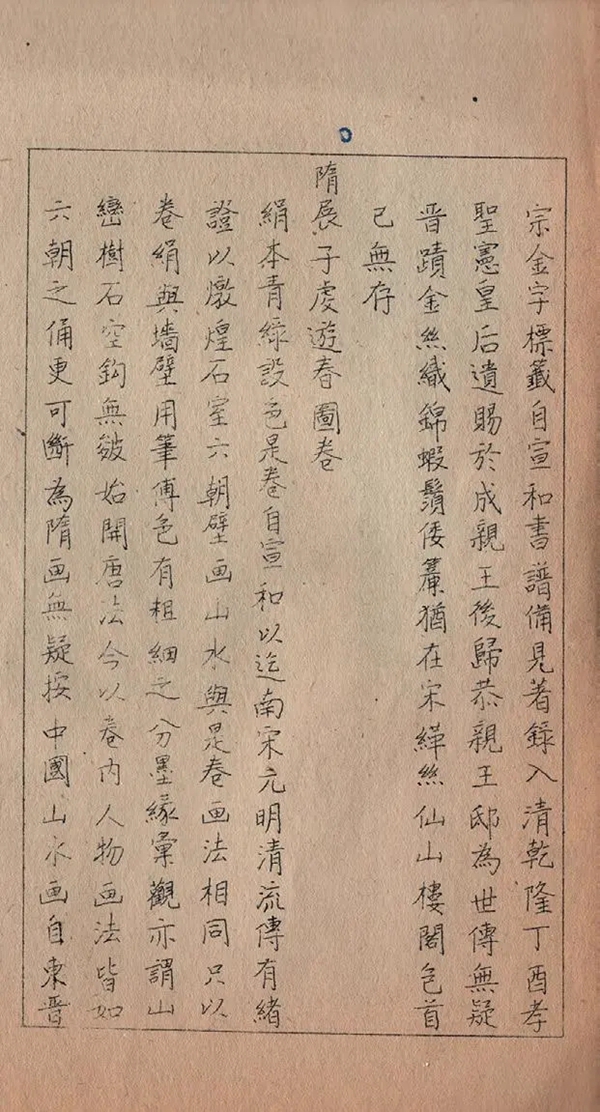 宗金字標籤自宣和書譜備見著錄入清乾隆丁酉孝
聖憲皇后遺賜於成親王後歸恭親王邸為世傳無疑
晉蹟金絲織錦蝦鬚倭簾猶在宋緙絲仙山樓閣包首
已無存
隋展子虔遊春圖卷
絹本青綠設色是卷自宣和以迄南宋元明清流傳有緒
證以燉煌石室六朝壁画山水與是卷画法相同只以
卷絹與墙壁用筆傅色有粗細之分墨緣彙觀亦謂山
巒樹石空鈎無皴始開唐法今以卷内人物画法皆如
六朝之俑更可斷為隋画無疑按中國山水画自東晉